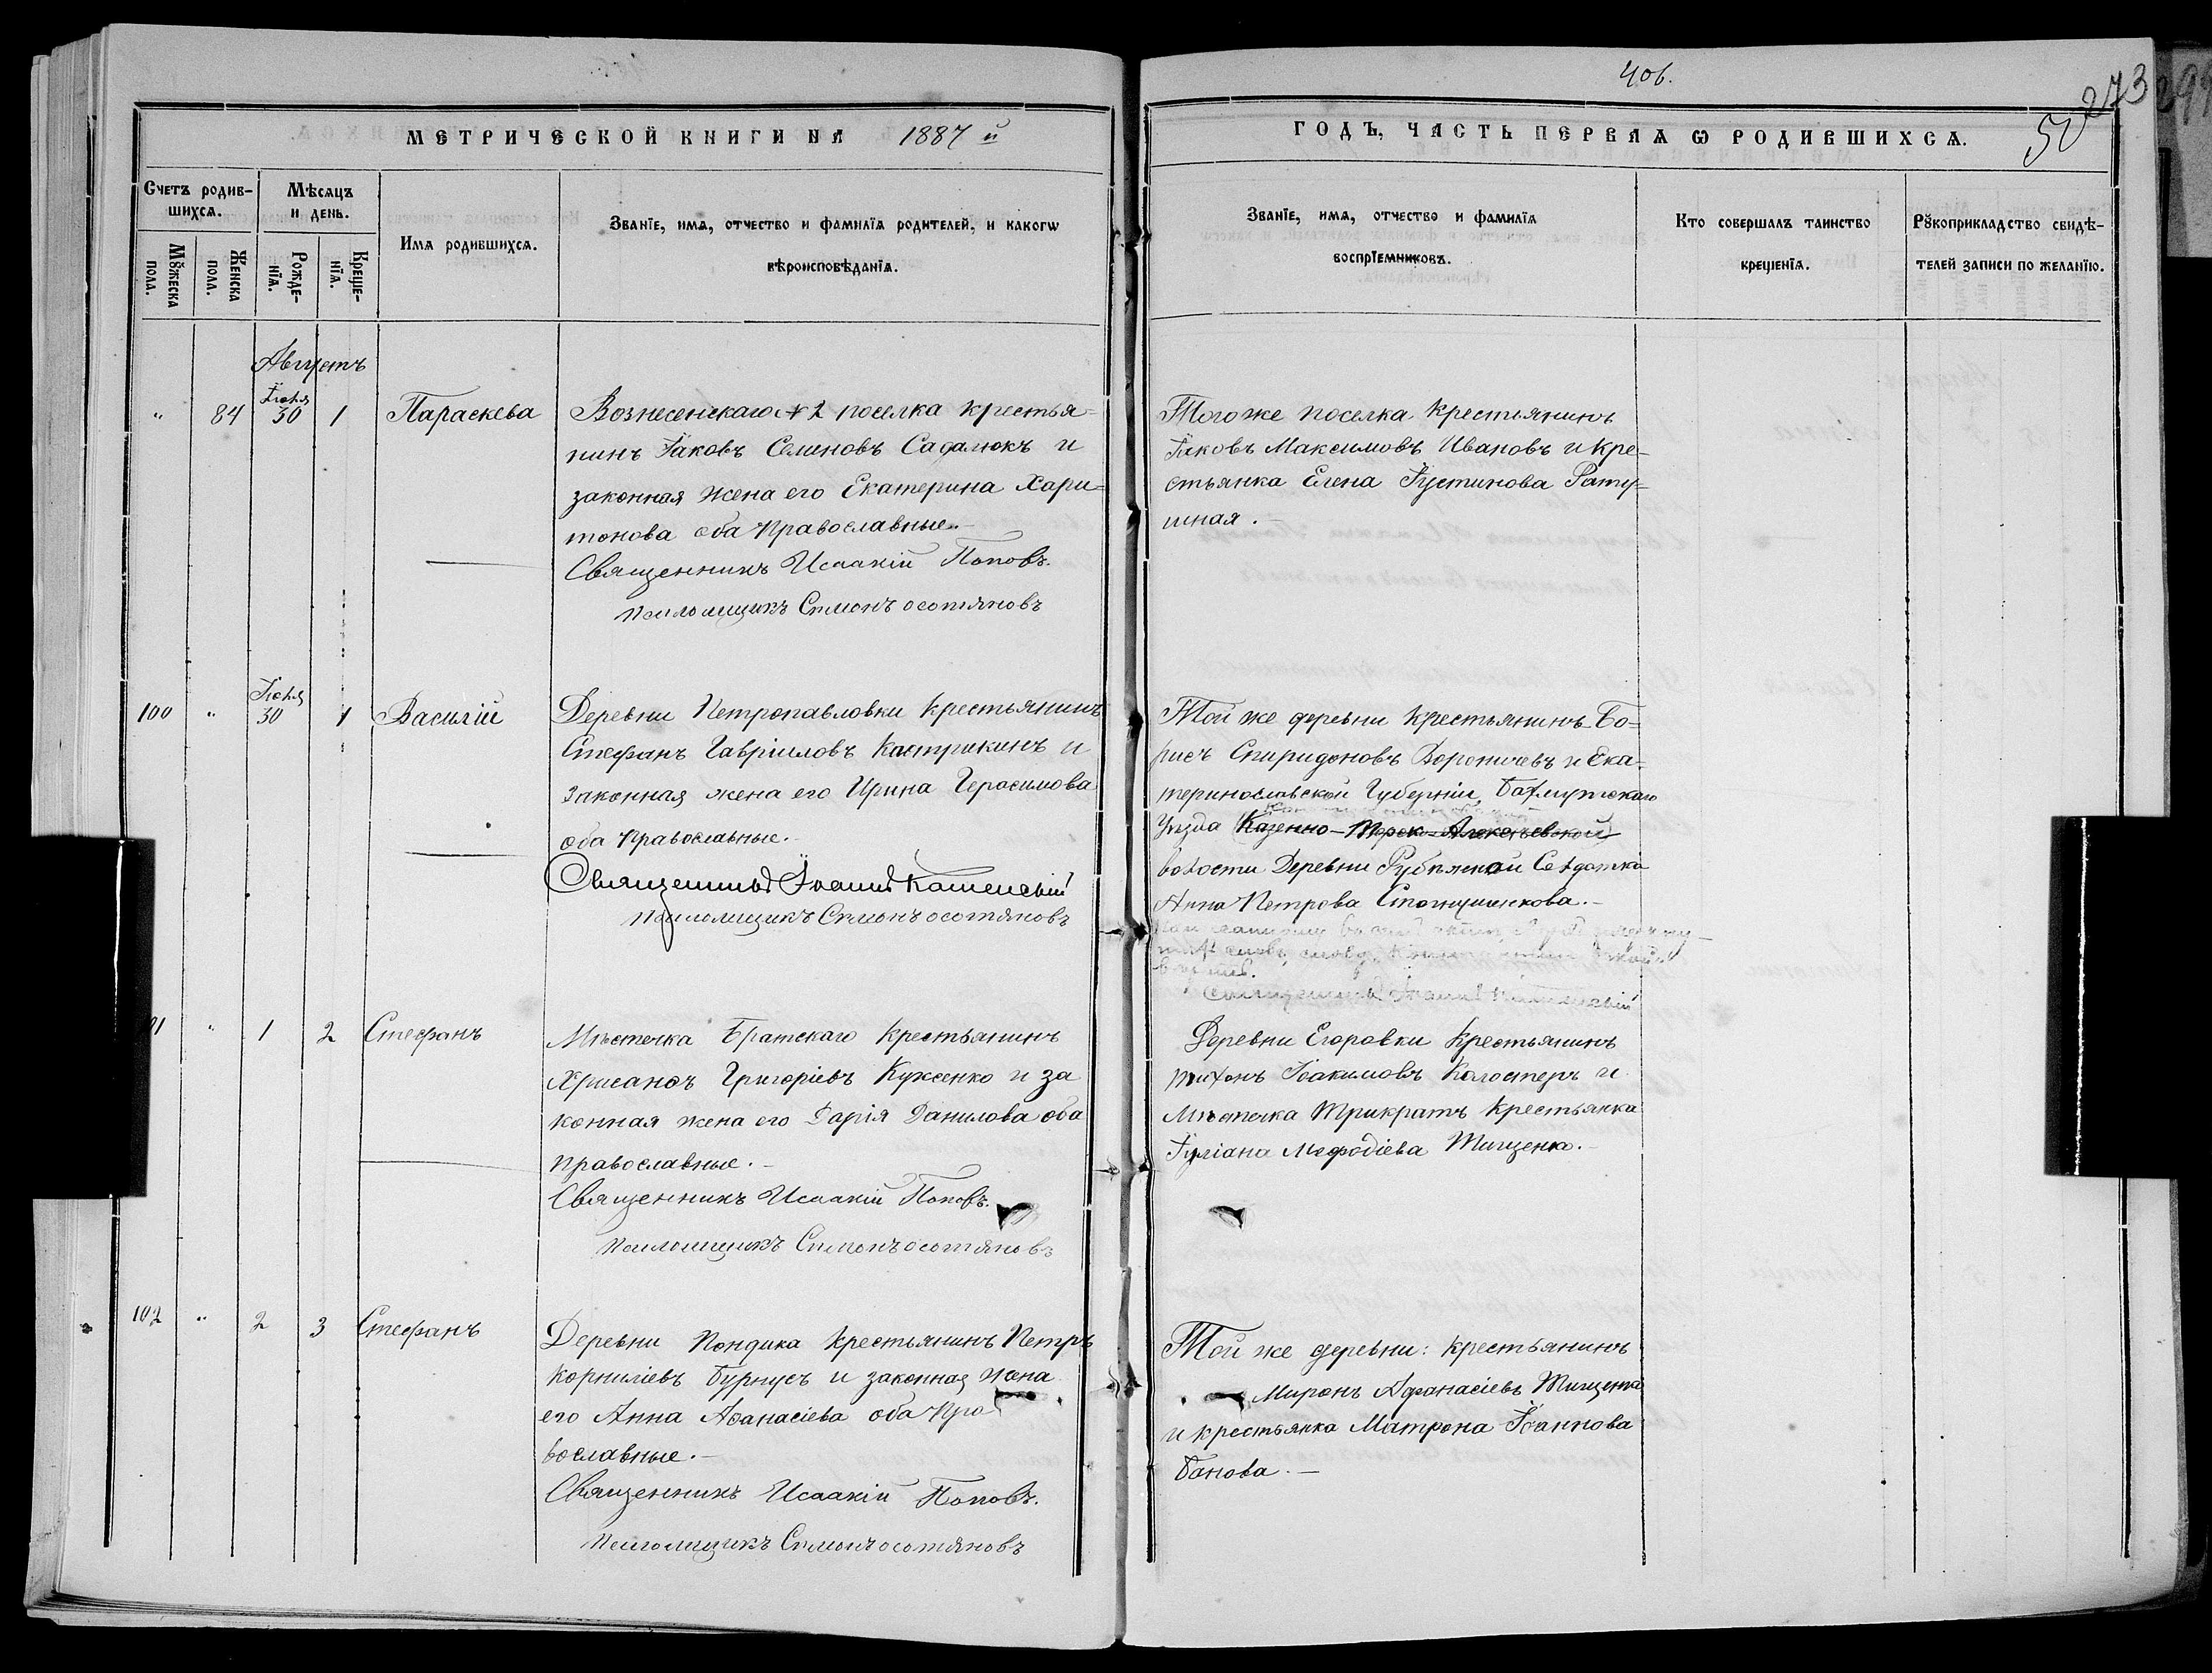 406.
273
299
50
МЕТРИЧЕСКОЙ КНИГИ НА 1887 й
ГОДЪ, ЧАСТЬ ПЕРВАѦ Ѡ РОДИВШИХСѦ.
Счетъ родив-
шихсѧ.
Мѣсѧцъ
и день.
Мꙋжеска
пола.
Женска
пола.
Рожде-
нїѧ.
Креще-
нїѧ.
Имѧ родившихсѧ.
Званїе, имѧ, отчество и фамилїѧ родителей, и какогѡ
вѣроисповѣданїѧ.
Званїе, имѧ, отчество и фамилїѧ
воспрїемниковъ.
Кто совершалъ таинство
крещенїѧ.
Рꙋкоприкладство свидѣ-
телей записи по желанїю.
Августъ
" 84 Іюля 30 1 Параскева
Вознесенскаго № 2 поселка крестья-
нинъ Іаковъ Семеновъ Садалюкъ и
законная жена его Екатерина Хари-
тонова оба православные.-
Священникъ Исаакій Поповъ.
Псаломщикъ Симонъ
Того же поселка крестьянинъ
Іаковъ Максимовъ Ивановъ и кре-
стьянка Елена Іустинова Рату-
шная.-
100 " Іюля 30 1 Василій
Деревни Петропавловки крестьянинъ
Стефанъ Гавріиловъ Кострикинъ и
законная жена его Ирина Герасимова
оба православные.-
Священникъ Іоаннъ Каменскій
Псаломщикъ Симонъ
Той же деревни крестьянинъ Бо-
рисъ Спиридоновъ и Ека-
теринославской Губерніи, Бахмутскаго
Уѣзда Казенно-Торско-Алексѣевской
волости Деревни Солдатка
Анна Петрова
Священникъ Іоаннъ Каменскій
" 1 2 Стефанъ
Мѣстечка Братскаго крестьянинъ
Хрисанѳъ Григоріевъ Куксенко и за
конная жена его Дарія Данилова оба
православные.-
Священникъ Исаакій Поповъ.
Псаломщикъ Симонъ
Деревни Егоровки крестьянинъ
Тихонъ Іоакимовъ и
Мѣстечка Трикратъ крестьянка
Іуліана Меѳодіева Тищенко.-
102 " 2 3 Стефанъ
Деревни Пондика крестьянинъ Петръ
Корниліевъ Бурнусъ и законная жена
его Анна Аѳанасіева оба пра
вославные.-
Священникъ Исаакій Поповъ.
Псаломщикъ Симонъ
Той же деревни: крестьянинъ
Миронъ Афанасіевъ Тищенко
и крестьянка Матрона Іоаннова
Банова.-